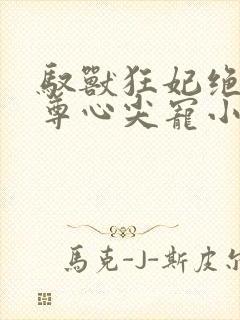 馭獸狂妃绝
尊心尖寵小
馬克-J-斯皮尔